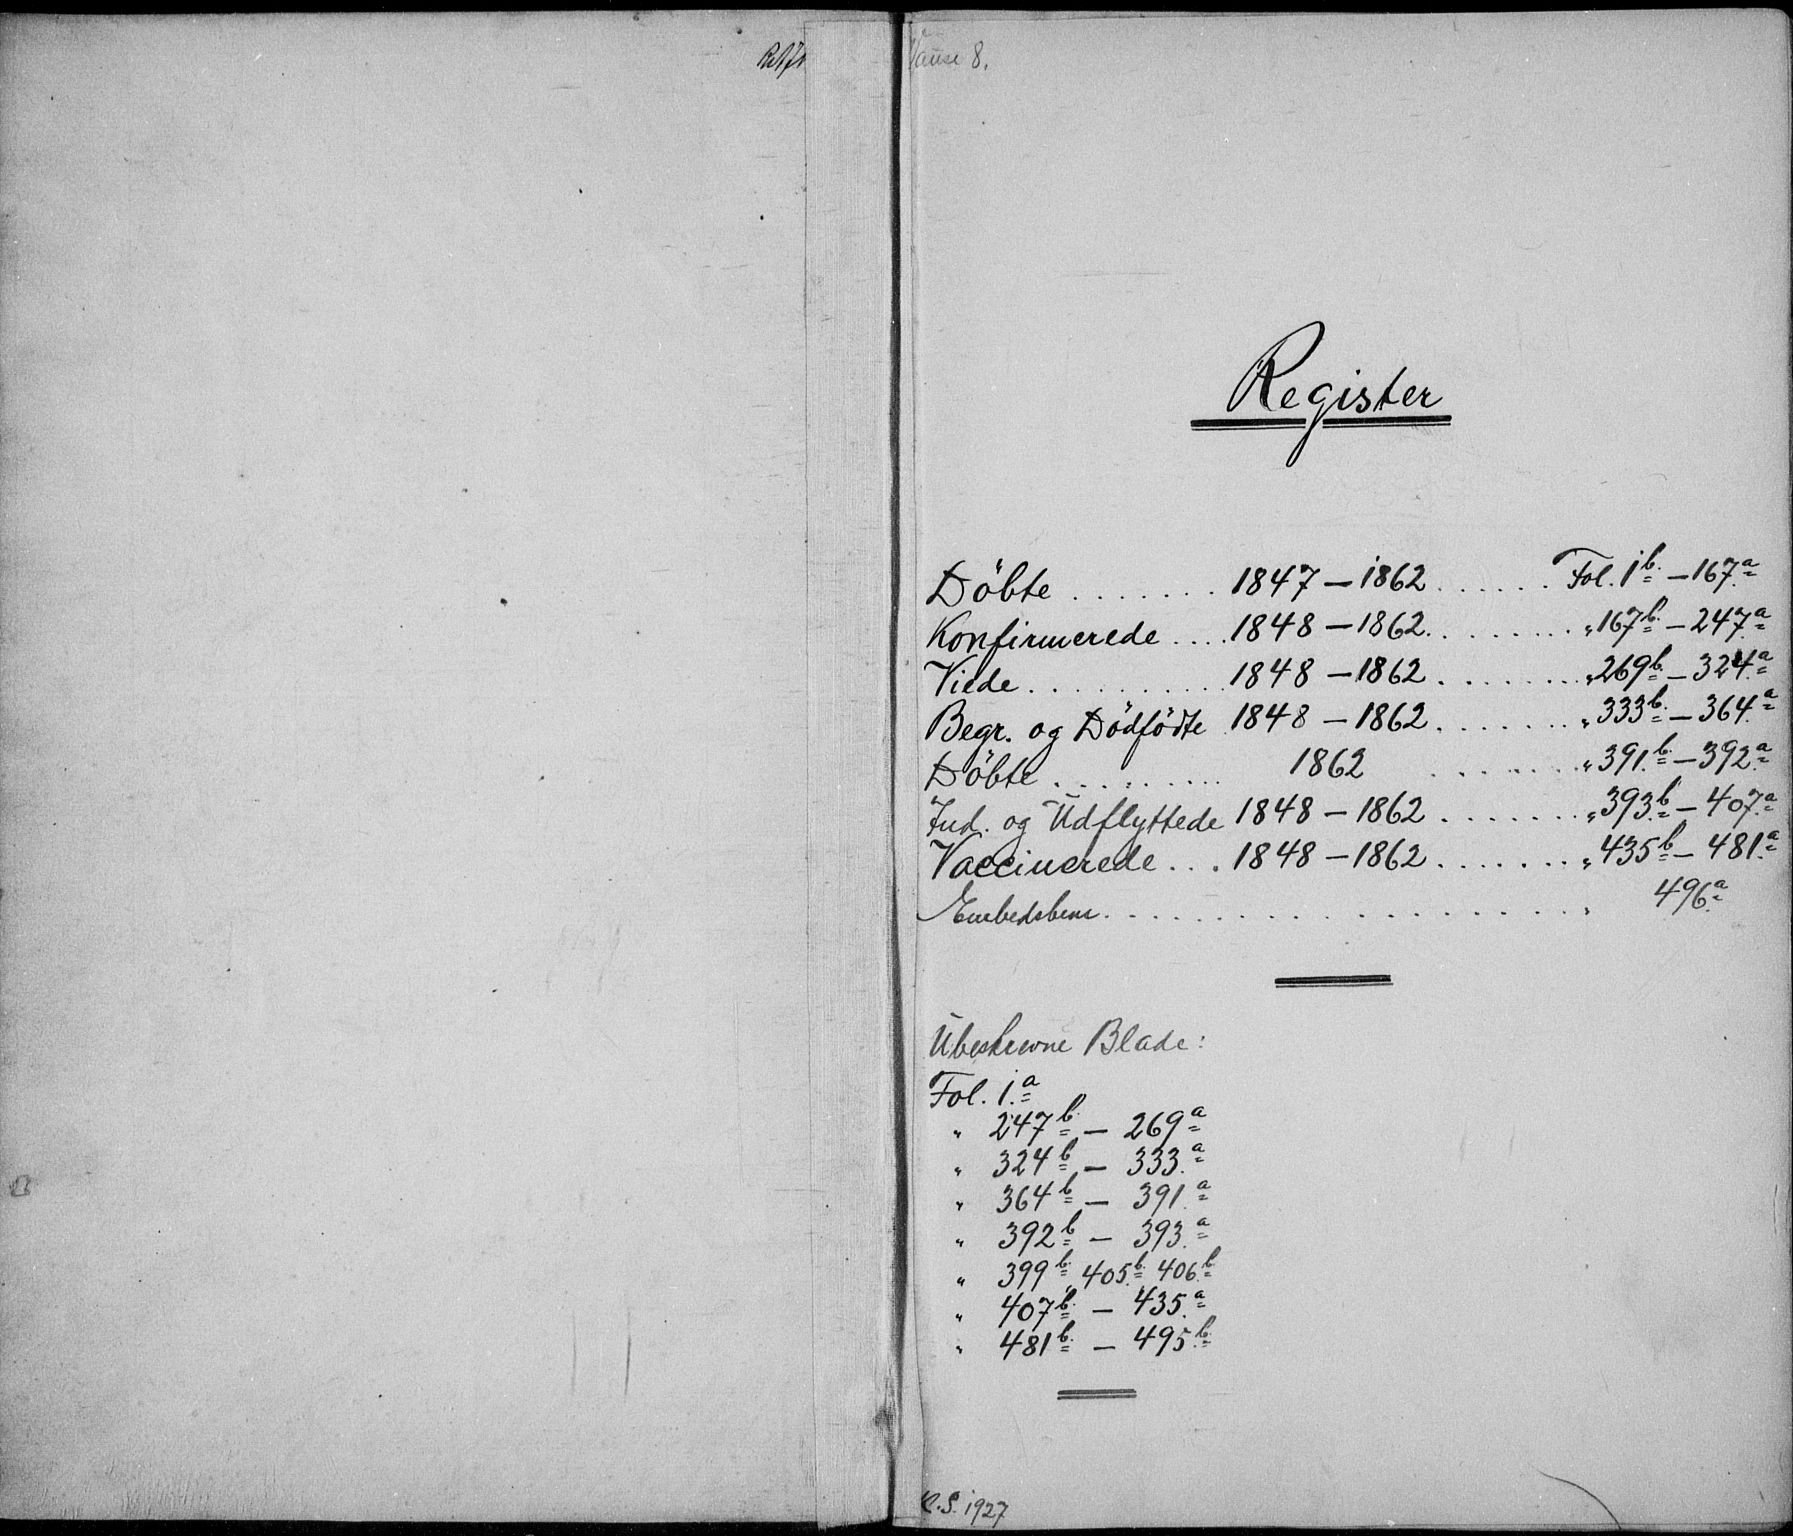 Vanse 8.
Register
Döbte ....... 1847 – 1862 ...... Fol. 1b. – 167.a
Konfirmerede .... 1848 – 1862. ........ " 167b. – 247.a
Viede .......... 1848 – 1862 ....... " 269b. – 324.a
Begr. og Dödfödte 1848 – 1862 ....... " 333b. – 364.a
Döbte ........ 1862 ....... " 391.b. – 392.a
Ind. og Udflyttede 1848 – 1862 ....... " 393.b – 407.a
Vaccinerede ... 1848 – 1862 ....... " 435b – 481.a
Embedsbem. .................. " 496.a
Ubeskrevne Blade:
Fol. 1.a
" 247b. – 269a
" 324b – 333.a
" 364b – 391.a
" 392b – 393.a
" 399b. 405.b. 406.b
" 407b. – 435.a
" 481b. – 495.b.
S. 1927